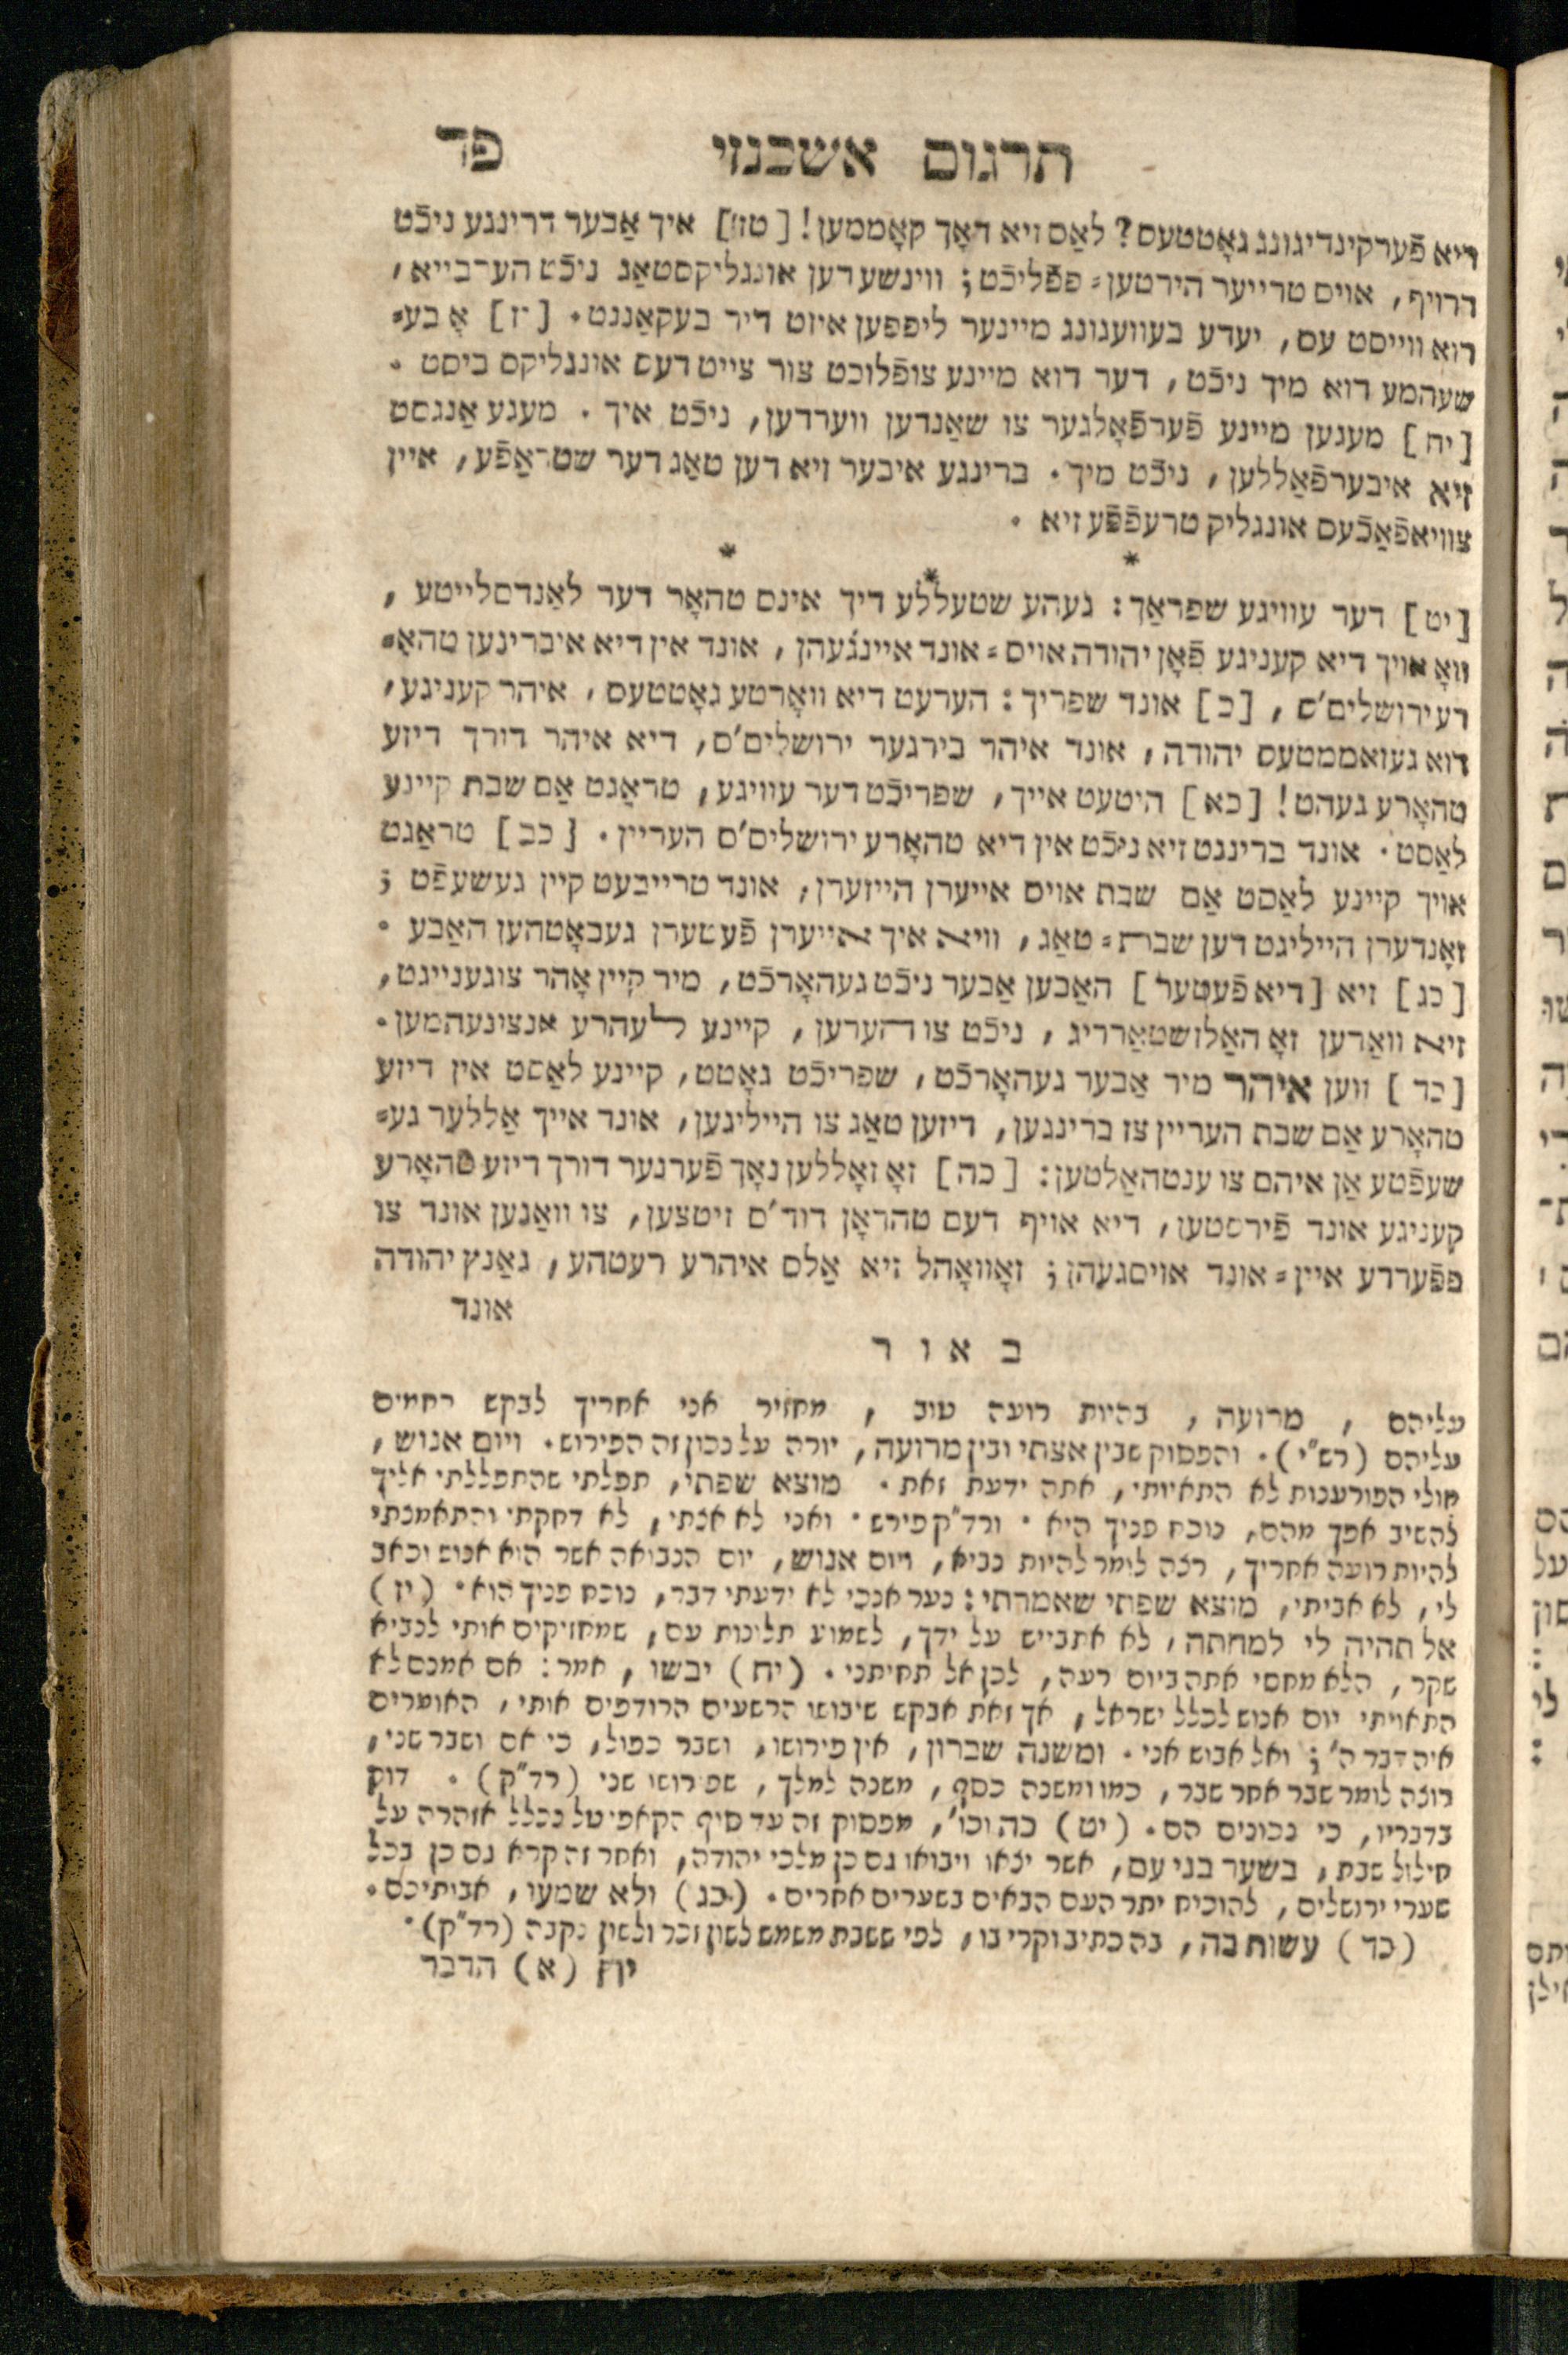 תרגום אשכנזי פד
דיא פֿערקינדיגונג גאָטטעס? לאַס זיא דאָך קאָממען! [טז] איך אַבער דרינגע ניכֿט
דרויף, אויס טרייער הירטען־פפֿליכֿט; ווינשע דען אונגליקסטאַג ניכֿט הערבייא,
דוא ווייסט עס, יעדע בעוועגונג מיינער ליפפען איזט דיר בעקאַננט. [יז] אָ בע־
שעהמע דוא מיך ניכֿט, דער דוא מיינע צופֿלוכט צור צייט דעס אונגליקס ביסט.
[יח] מעגען מיינע פֿערפֿאָלגער צו שאַנדען ווערדען, ניכֿט איך. מעגע אַנגסט
זיא איבערפֿאַללען, ניכֿט מיך. ברינגע איבער זיא דען טאַג דער שטראַפֿע, איין
צוויאפֿאַכֿעס אונגליק טרעפֿפֿע זיא.
* * *
[יט] דער עוויגע שפראַך: געהע שטעללע דיך אינס טהאָר דער לאַנדסלייטע,
וואָ אויך דיא קעניגע פֿאָן יהודה אויס־אונד איינגעהן, אונד אין דיא איבריגען טהאָ־
רע ירושלים'ס, [כ] אונד שפריך: הערעט דיא וואָרטע גאָטטעס, איהר קעניגע,
דוא געזאממטעס יהודה, אונד איהר בירגער ירושלים'ס, דיא איהר דורך דיזע
טהאָרע געהט! [כא] היטעט אייך, שפריכֿט דער עוויגע, טראַגט אַם שבת קיינע
לאַסט. אונד ברינגט זיא ניכֿט אין דיא טהאָרע ירושלים'ס העריין. [כב] טראַגט
אויך קיינע לאַסט אַם שבת אויס אייערן הייזערן, אונד טרייבעט קיין געשעפֿט;
זאָנדערן הייליגט דען שבת־טאַג, וויא איך אייערן פֿעטערן געבאָטהען האַבע.
[כג] זיא [דיא פֿעטער] האַבען אַבער ניכֿט געהאָרכֿט, מיר קיין אָהר צוגענייגט,
זיא וואַרען זאָ האַלזשטאַרריג, ניכֿט צו הערען, קיינע לעהרע אנצינעהמען.
[כד] ווען איהר מיר אַבער געהאָרכֿט, שפריכֿט גאָטט, קיינע לאַסט אין דיזע
טהאָרע אַם שבת העריין צו ברינגען, דיזען טאַג צו הייליגען, אונד אייך אַללער גע־
שעפֿטע אַן איהם צו ענטהאַלטען: [כה] זאָ זאָללען נאָך פֿערנער דורך דיזע טהאָרע
קעניגע אונד פֿירסטען, דיא אויף דעם טהראָן דוד'ס זיטצען, צו וואַגען אונד צו
פפֿערדע איין־אונד אויסגעהן; זאָוואָהל זיא אַלס איהרע רעטהע, גאַנץ יהודה
אונד
באור
עליהם, מרועה, בהיות רועה טוב, מחזיר אני אחריך לבקש רחמים
עליהם (רש"י). והפסוק שבין אצתי ובין מרועה, יורה על נכון זה הפירוש. ויום אנוש,
חולי הפורענות לא התאויתי, אתה ידעת זאת. מוצא שפתי, תפלתי שהתפללתי אליך
להשיב אפך מהם, נוכח פניך היא. ורד"ק פירש. ואני לא אצתי, לא דחקתי והתאמצתי
להיות רועה אחריך, רצה לומר להיות נביא, ויום אנוש, יום הנבואה אשר הוא אנוש וכאב
לי, לא אביתי, מוצא שפתי שאמרתי: נער אנכי לא ידעתי דבר, נוכח פניך הוא. (יז)
אל תהיה לי למחתה, לא אתבייש על ידך, לשמוע תלונות עם, שמחזיקים אותי לנביא
שקר, הלא מחסי אתה ביום רעה, לכן אל תחיתני. (יח) יבשו, אמר: אם אמנם לא
התאויתי יום אנוש לכלל ישראל, אך זאת אבקש שיבושו הרשעים הרודפים אותי, האומרים
איה דבר ה'; ואל אבוש אני. ומשנה שברון, אין פירושו, ושבר כפול, כי אם ושבר שני,
רוצה לומר שבר אחר שבר, כמו ומשנה כסף, משנה למלך, שפירושו שני (רד"ק). דוק
בדבריו, כי נכונים הם. (יט) כה וכו', מפסוק זה עד סוף הקאפיטל בכלל אזהרה על
חילול שבת, בשער בני עם, אשר יצאו ויבואו גם כן מלכי יהודה, ואחר זה קרא גם כן בכל
שערי ירושלים, להוכיח יתר העם הבאים בשערים אחרים. (כג) ולא שמעו, אבותיכם.
(כד) עשות בה, בה כתיב וקרי בו, לפי ששבת משמש לשון זכר ולשון נקבה (רד"ק).
יח (א) הדבר